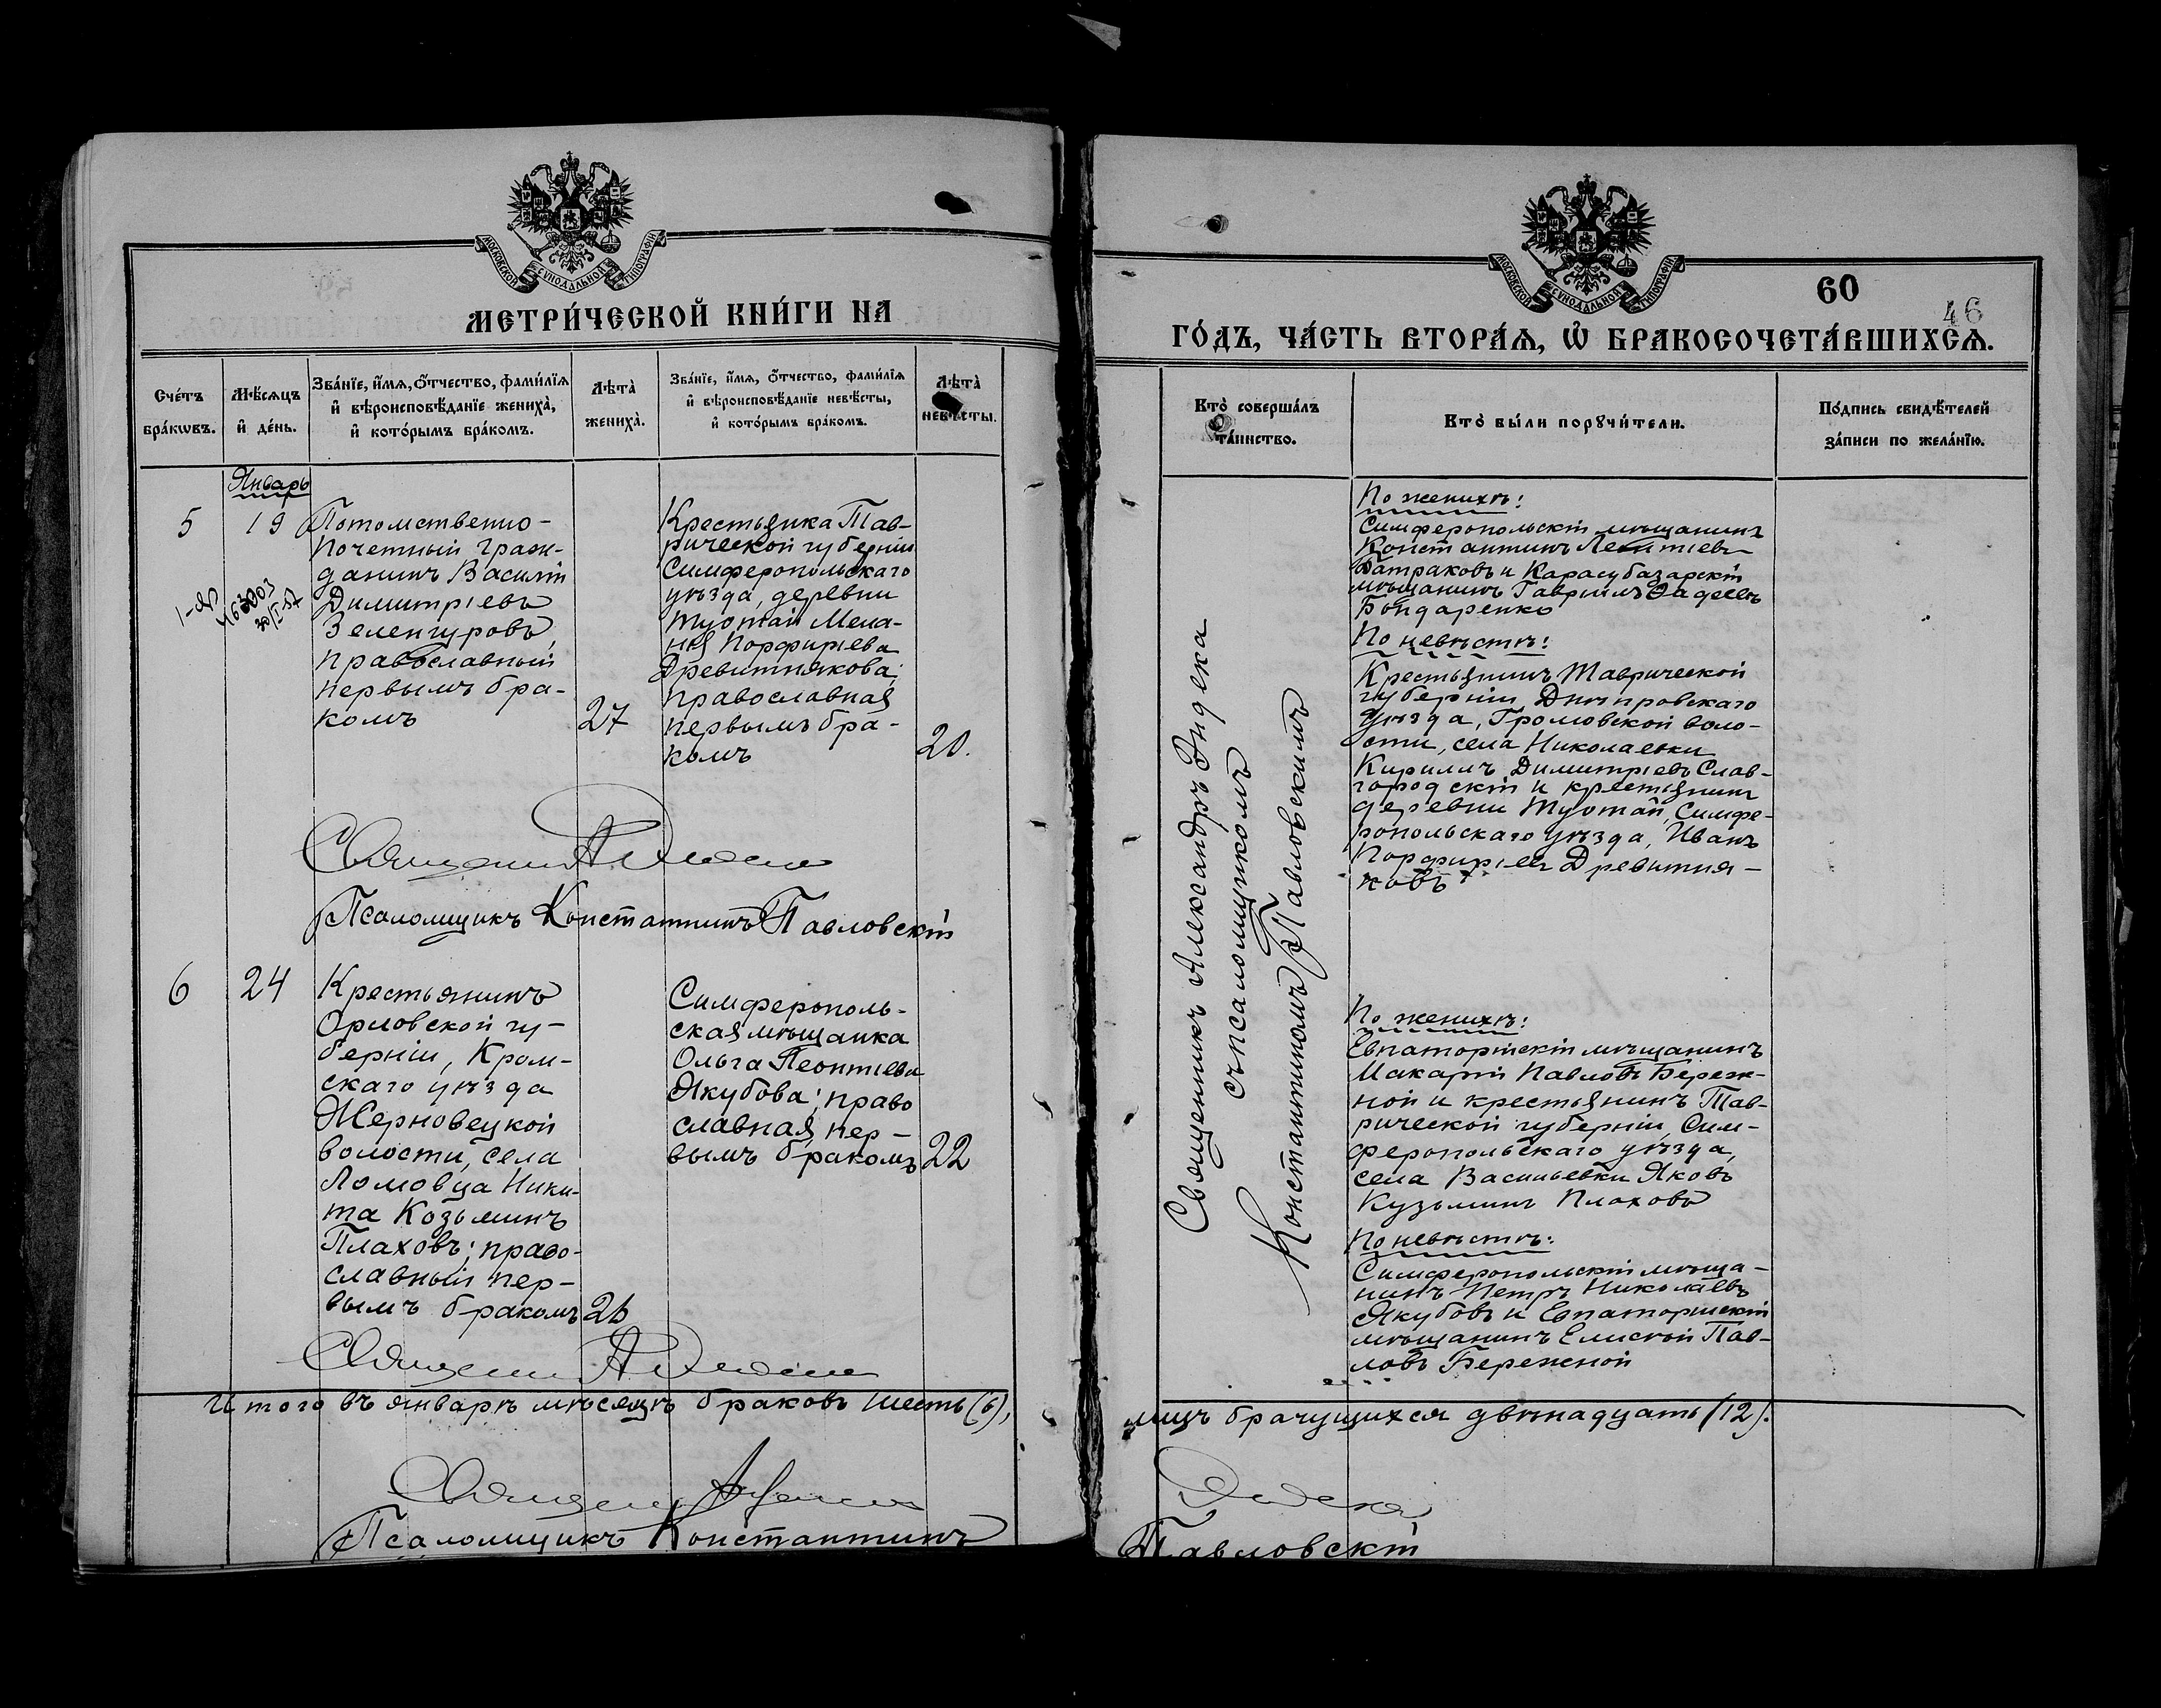 МОСКОВСКОЙ СѴНОДАЛЬНОЙ ТИПОГРАФІИ
МЕТРИ́ЧЕСКОЙ КНИ́ГИ НА
Сче́тъ бра́кѡвъ.
Мѣ́сяцъ и҆ де́нь.
Зва́нїе, и҆́мѧ, ѻ҆́тчество, фами́лїѧ и҆ вѣроисповѣ́данїе жениха̀, и҆ кото́рымъ бра́комъ.
Лѣта̀ жениха̀.
Зва́нїе, и҆́мѧ, ѻ҆́тчество, фами́лїѧ и҆ вѣроисповѣ́данїе невѣ́сты, и҆ кото́рымъ бра́комъ.
Лѣта̀ невѣ́сты.
Январь
5
19
Потомственно-
почетный граж-
данинъ Василій
Димитріевъ
Зеленгуровъ,
православный
первымъ бра-
комъ
27
Крестьянка Тав-
рической губерніи
Симферопольскаго
уѣзда, деревни
Туотай Мела-
нія Порфиріева
Древитнякова;
православная
первымъ бра-
комъ
20.
Псаломщикъ Константинъ Павловскій
6
24
Крестьянинъ
Орловской гу-
берніи, Кром-
скаго уѣзда
Жерновецкой
волости, села
Ломовца Ники-
та Козьминъ
Плаховъ; право-
славный пер-
вымъ бракомъ
26
Симферополь-
ская мѣщанка
Ольга Леонтіева
Якубова; право
славная, пер-
вымъ бракомъ
22
Итого въ январѣ мѣсяцѣ браковъ шесть (6),
Псаломщикъ Константинъ
МОСКОВСКОЙ СѴНОДАЛЬНОЙ ТИПОГРАФІИ
60
46
ГО́ДЪ, ЧА́СТЬ ВТОРА́Ѧ, Ѽ БРАКОСОЧЕТА́ВШИХСѦ.
Кто̀ соверша́лъ та́инство.
Кто̀ бы́ли порꙋчи́тели.
По́дпись свидѣ́телей за́писи по жела́нїю.
Священникъ Александръ Эндека
съ псаломщикомъ
Константиномъ Павловскимъ
По женихѣ:
Симферопольскій мѣщанинъ
Константинъ Леонтіевъ
Батраковъ и Карасубазарскій
мѣщанинъ Гавріилъ Фадеевъ
Бондаренко
По невѣстѣ:
Крестьянинъ Таврической
губерніи, Днѣпровскаго
уѣзда, Громовской воло-
сти, села Николаевки
Кириллъ Димитріевъ Слав-
городскій и крестьянинъ
деревни Туотай, Симфе-
ропольскаго уѣзда, Иванъ
Порфиріевъ Древитня-
ковъ
По женихѣ:
Евпаторійскій мѣщанинъ
Макарій Павловъ Береж-
ной и крестьянинъ Тав-
рической губерніи, Сим-
феропольскаго уѣзда,
села Васильевки Яковъ
Кузьминъ Плаховъ
По невѣстѣ:
Симферопольскій мѣща-
нинъ Петръ Николаевъ
Якубовъ и Евпаторійскій
мѣщанинъ Елисей Пав-
ловъ Бережной
лицъ брачущихся двѣнадцать (12).
Павловскій